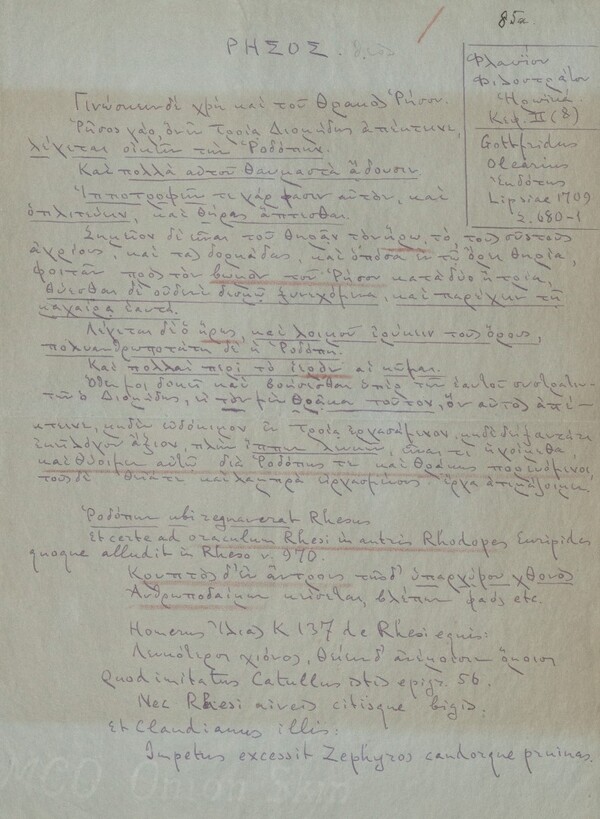 85a
ΡΗΣΟΣ.
Φλαυΐου
Φιλοστράτου
Ἡρωϊκά.
Κεφ. II (8)
Gottfridus
Olearius
Ἐκδότης
Lipsiae 1709
Σ. 680-1
Γινώσκειν δὲ χρὴ καὶ τοῦ Θρακὸς Ῥήσου.
Ῥῆσος γὰρ, ὃν ἐν Τροίᾳ Διομήδης ἀπέκτεινε,
λέγεται οἰκεῖν τὴν Ῥοδόπην.
Καὶ πολλὰ αὐτοῦ θαυμαστὰ ᾄδουσιν
Ἱπποτροφεῖν τε γάρ φασιν αὐτὸν, καὶ
ὁπλιτεύειν, καὶ θήρας ἅπτεσθαι.
Σημεῖον δὲ εἶναι τοῦ θηρᾶν τὸν ἥρω, τὸ τοὺς σῦς τοὺς
ἀγρίους, καὶ τὰς δορκάδας, καὶ ὁπόσα ἐν τῷ ὄρει θηρία,
φοιτᾶν πρὸς τὸν βωμὸν τοῦ Ῥήσου κατὰ δύο ἢ τρία,
θύεσθαι δὲ οὐδενὶ δεσμῷ ξυνεχόμενα, καὶ παρέχειν τῇ
μαχαίρᾳ ἑαυτά.
Λέγεται δὲ ὁ ἥρως, καὶ λοιμοῦ ἐρύκειν τοὺς ὅρους,
πολυανθρωποτάτη δὲ ἡ Ῥοδόπη.
Καὶ πολλαὶ περὶ τὸ ἱερὸν αἱ κῶμαι.
Ὅθεν μοι δοκεῖ καὶ βοήσεσθαι ὑπὲρ τῶν ἑαυτοῦ συστρατιω-
τῶν ὁ Διομήδης, εἰ τὸν μὲν Θρᾷκα τοῦτον, ὃν αὐτὸς ἀπέ-
κτεινε, μηδὲν εὐδόκιμον ἐν Τροίᾳ ἐργασάμενον, μηδὲ δείξαντά τι
λόγου ἄξιον, πλὴν ἵππων λευκῶν, εἶναί τι ἡγοίμεθα,
καὶ θύοιμεν αὐτῷ διὰ Ῥοδόπης τε καὶ Θρᾴκης πορευόμενοι,
τοὺς δὲ θεῖά τε καὶ λαμπρὰ εἰργασμένους ἔργα ἀτιμάζοιμεν
Ῥοδόπην ubi regnaverat Rhesus
Et certe ad oraculum Rhesi in antris Rhodopes Euripides
quoque alludit in Rheso v. 970.
Κρυπτὸς δ'ἐν ἄντροις τῆσδ' ὑπαργύρου χθονὸς
Ἀνθρωποδαίμων κείσεται, βλέπων φάος etc.
Homerus Ἰλιας Κ 437 de Rhesi equis:
Λευκότεροι χιόνος, θείειν δ' ἀνέμοισιν ὅμοιοι
Quod imitatus Catullus istis epigr. 56.
Nec Rhesi niveis citisque bigis.
Et Claudianus illis:
Impetus excessit Zephyros candorque pruinas.
MCO Onion Skin